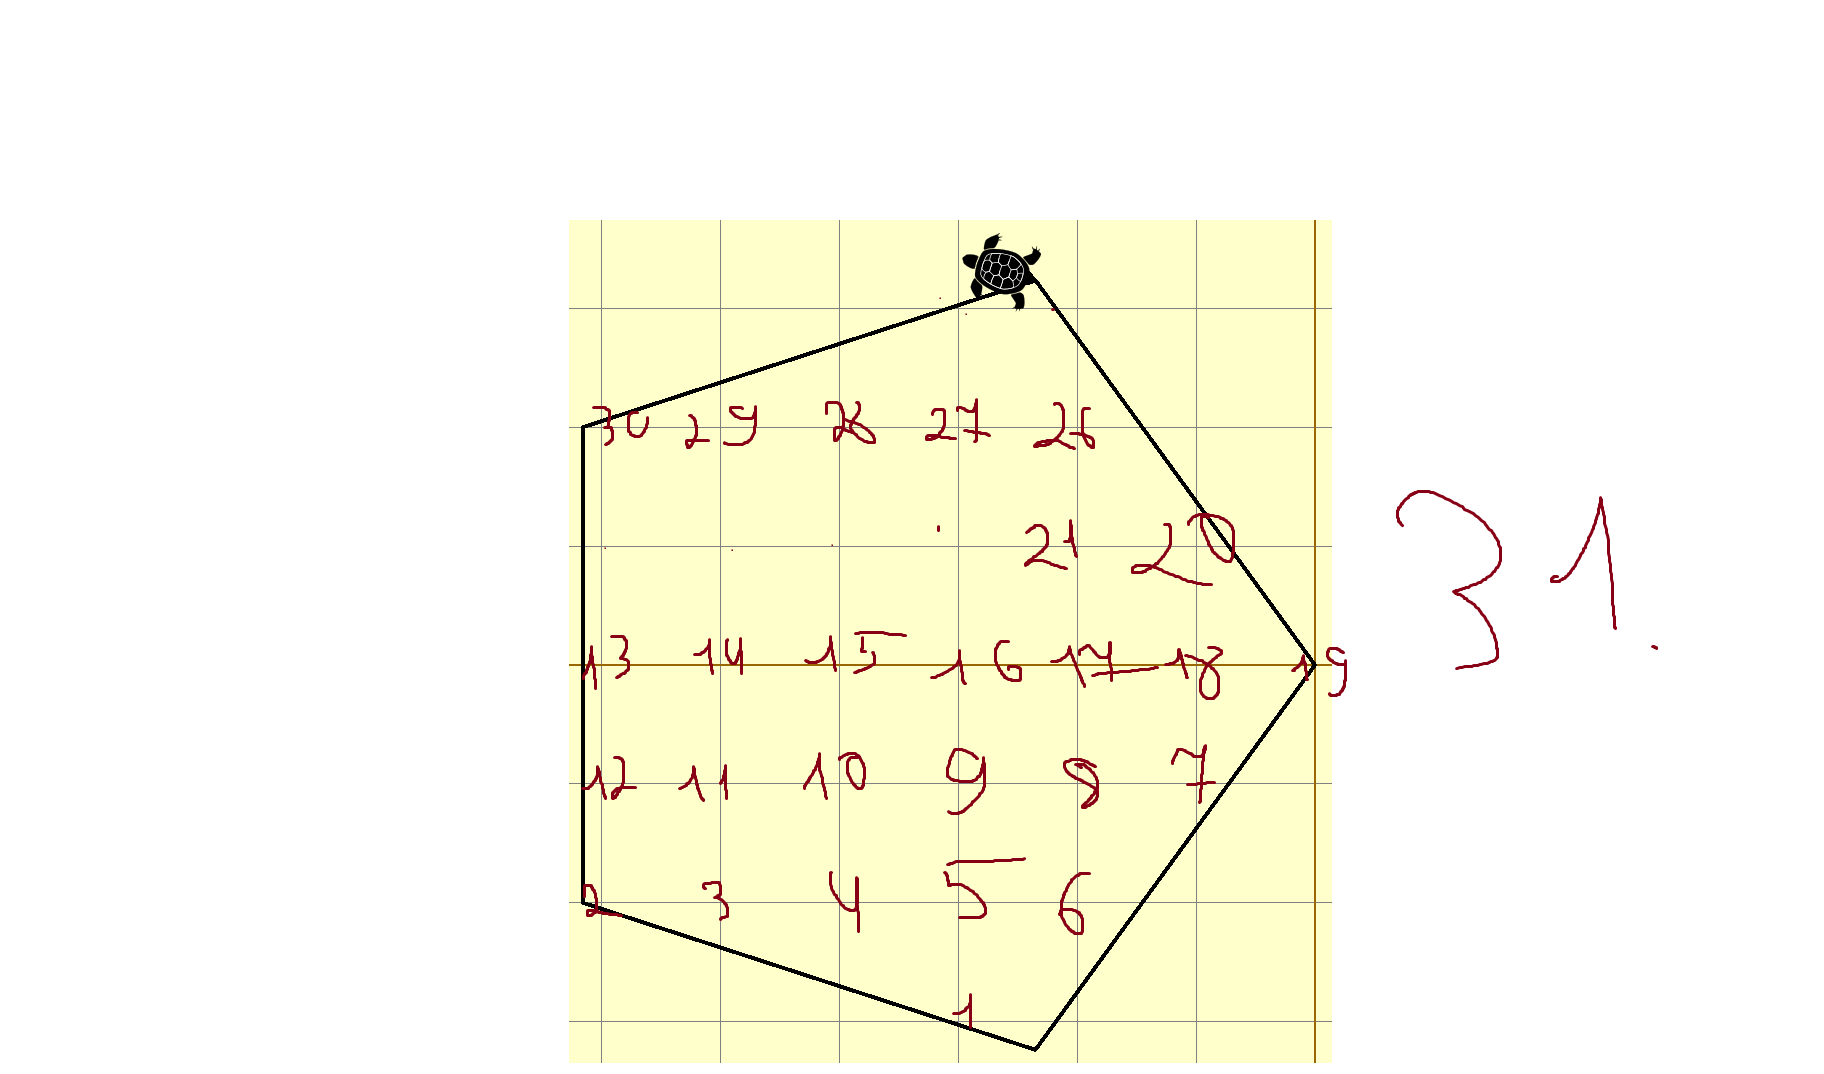 30 29 28 27 26
21 20
31.
13 14 15 16 17 18 19
12 11 10 9 8 7
2 3 4 5 6
1